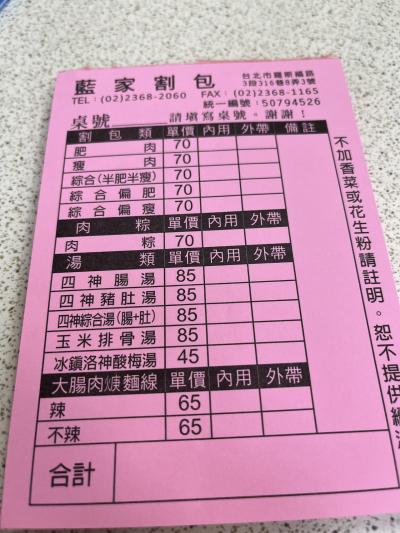 藍家割包
台北市羅斯福路
3段316巷8弄3號
TEL：(02)2368-2060 FAX：(02)2368-1165
統一編號：50794526
桌號 請填寫桌號。謝謝！
割包類 單價 內用 外帶 備註
肥肉 70
瘦肉 70
綜合(半肥半瘦) 70
綜合偏肥 70
綜合偏瘦 70
肉粽 單價 內用 外帶
肉粽 70
湯類 單價 內用 外帶
四神腸湯 85
四神豬肚湯 85
四神綜合湯(腸+肚) 85
玉米排骨湯 85
冰鎮洛神酸梅湯 45
大腸肉焿麵線 單價 內用 外帶
辣 65
不辣 65
合計
不加香菜或花生粉請註明。恕不提供